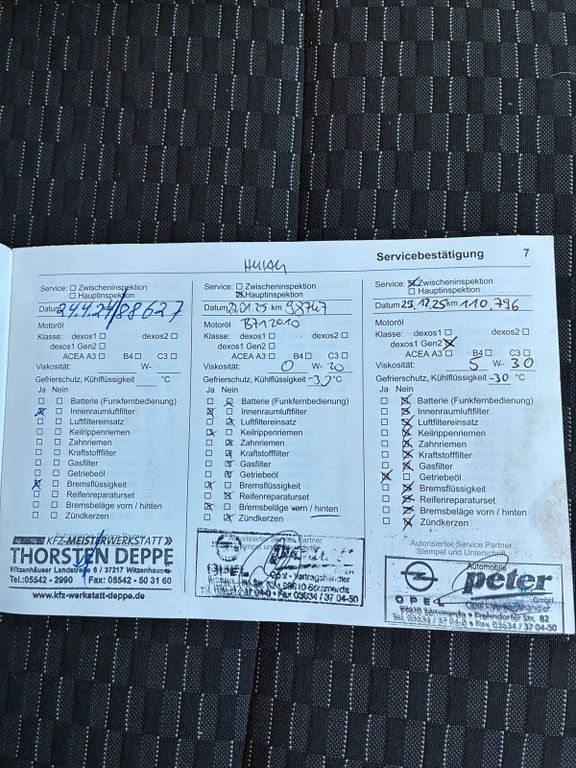 Servicebestätigung 7
Service: Zwischeninspektion
Hauptinspektion
Datum 24.4.24/88627
Motoröl
Klasse: dexos1 dexos2
dexos1 Gen2
ACEA A3 B4 C3
Viskosität: W-
Gefrierschutz, Kühlflüssigkeit °C
Ja Nein
Batterie (Funkfernbedienung)
Innenraumluftfilter
Luftfiltereinsatz
Keilrippenriemen
Zahnriemen
Kraftstofffilter
Gasfilter
Getriebeöl
Bremsflüssigkeit
Reifenreparaturset
Bremsbeläge vorn / hinten
Zündkerzen
KFZ-MEISTERWERKSTATT
THORSTEN DEPPE
Witzenhäuser Landstraße 6 / 37217 Witzenhausen
Tel.:05542 - 2990 Fax: 05542 - 50 31 60
www.kfz-werkstatt-deppe.de
Service: Zwischeninspektion
Hauptinspektion
Datum 22.01.25 km 98747
Motoröl B712010
Klasse: dexos1 dexos2
dexos1 Gen2
ACEA A3 B4 C3
Viskosität: 0 W- 20
Gefrierschutz, Kühlflüssigkeit -30 °C
Ja Nein
Batterie (Funkfernbedienung)
Innenraumluftfilter
Luftfiltereinsatz
Keilrippenriemen
Zahnriemen
Kraftstofffilter
Gasfilter
Getriebeöl
Bremsflüssigkeit
Reifenreparaturset
Bremsbeläge vorn / hinten
Zündkerzen
Opel - Vertragshändler
99610 Sömmerda
Fax 03634 / 37 04-50
Service: Zwischeninspektion
Hauptinspektion
Datum 29.12.25 km 110.796
Motoröl
Klasse: dexos1 dexos2
dexos1 Gen2
ACEA A3 B4 C3
Viskosität: 5 W- 30
Gefrierschutz, Kühlflüssigkeit -30 °C
Ja Nein
Batterie (Funkfernbedienung)
Innenraumluftfilter
Luftfiltereinsatz
Keilrippenriemen
Zahnriemen
Kraftstofffilter
Gasfilter
Getriebeöl
Bremsflüssigkeit
Reifenreparaturset
Bremsbeläge vorn / hinten
Zündkerzen
Autorisierter Service Partner
Stempel und Unterschrift
Automobile
peter
GmbH
OPEL Opel - Vertragshändler
99610 Sömmerda • Frohndorfer Str. 82
Tel. 03634 / 37 04-0 • Fax 03634 / 37 04-50